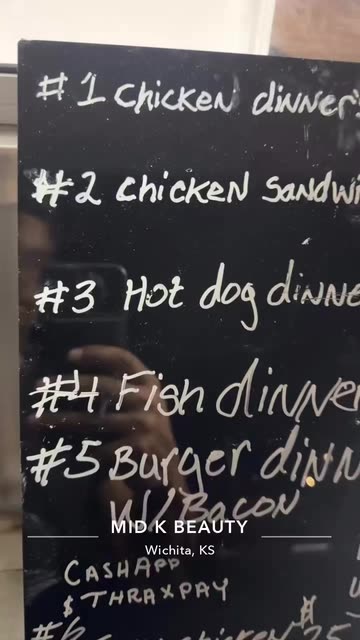 #1 Chicken dinner
#2 Chicken Sandwi
#3 Hot dog dinne
#4 Fish dinner
#5 Burger dinn
W/Bacon
MID K BEAUTY
Wichita, KS
CASHAPP
$THRAXPAY
#6